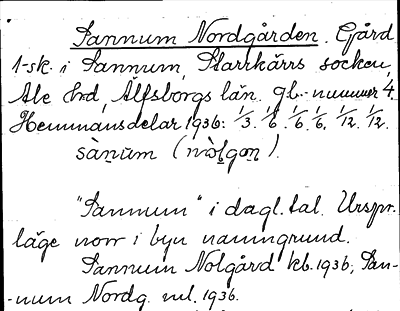 Sannum Nordgården. Gård
1-sk. i Sannum, Starrkärrs socken,
Ale hrd, Älfsborgs län. gb.-nummer 4.
Hemmansdelar 1936: 1/3. 1/6. 1/6. 1/6. 1/12. 1/12.
sànum (nòlgon).
"Sannum" i dagl. tal. Urspr.
läge norr i byn namngrund.
Sannum Nolgård kb. 1936; San-
-num Nordg. ml. 1936.